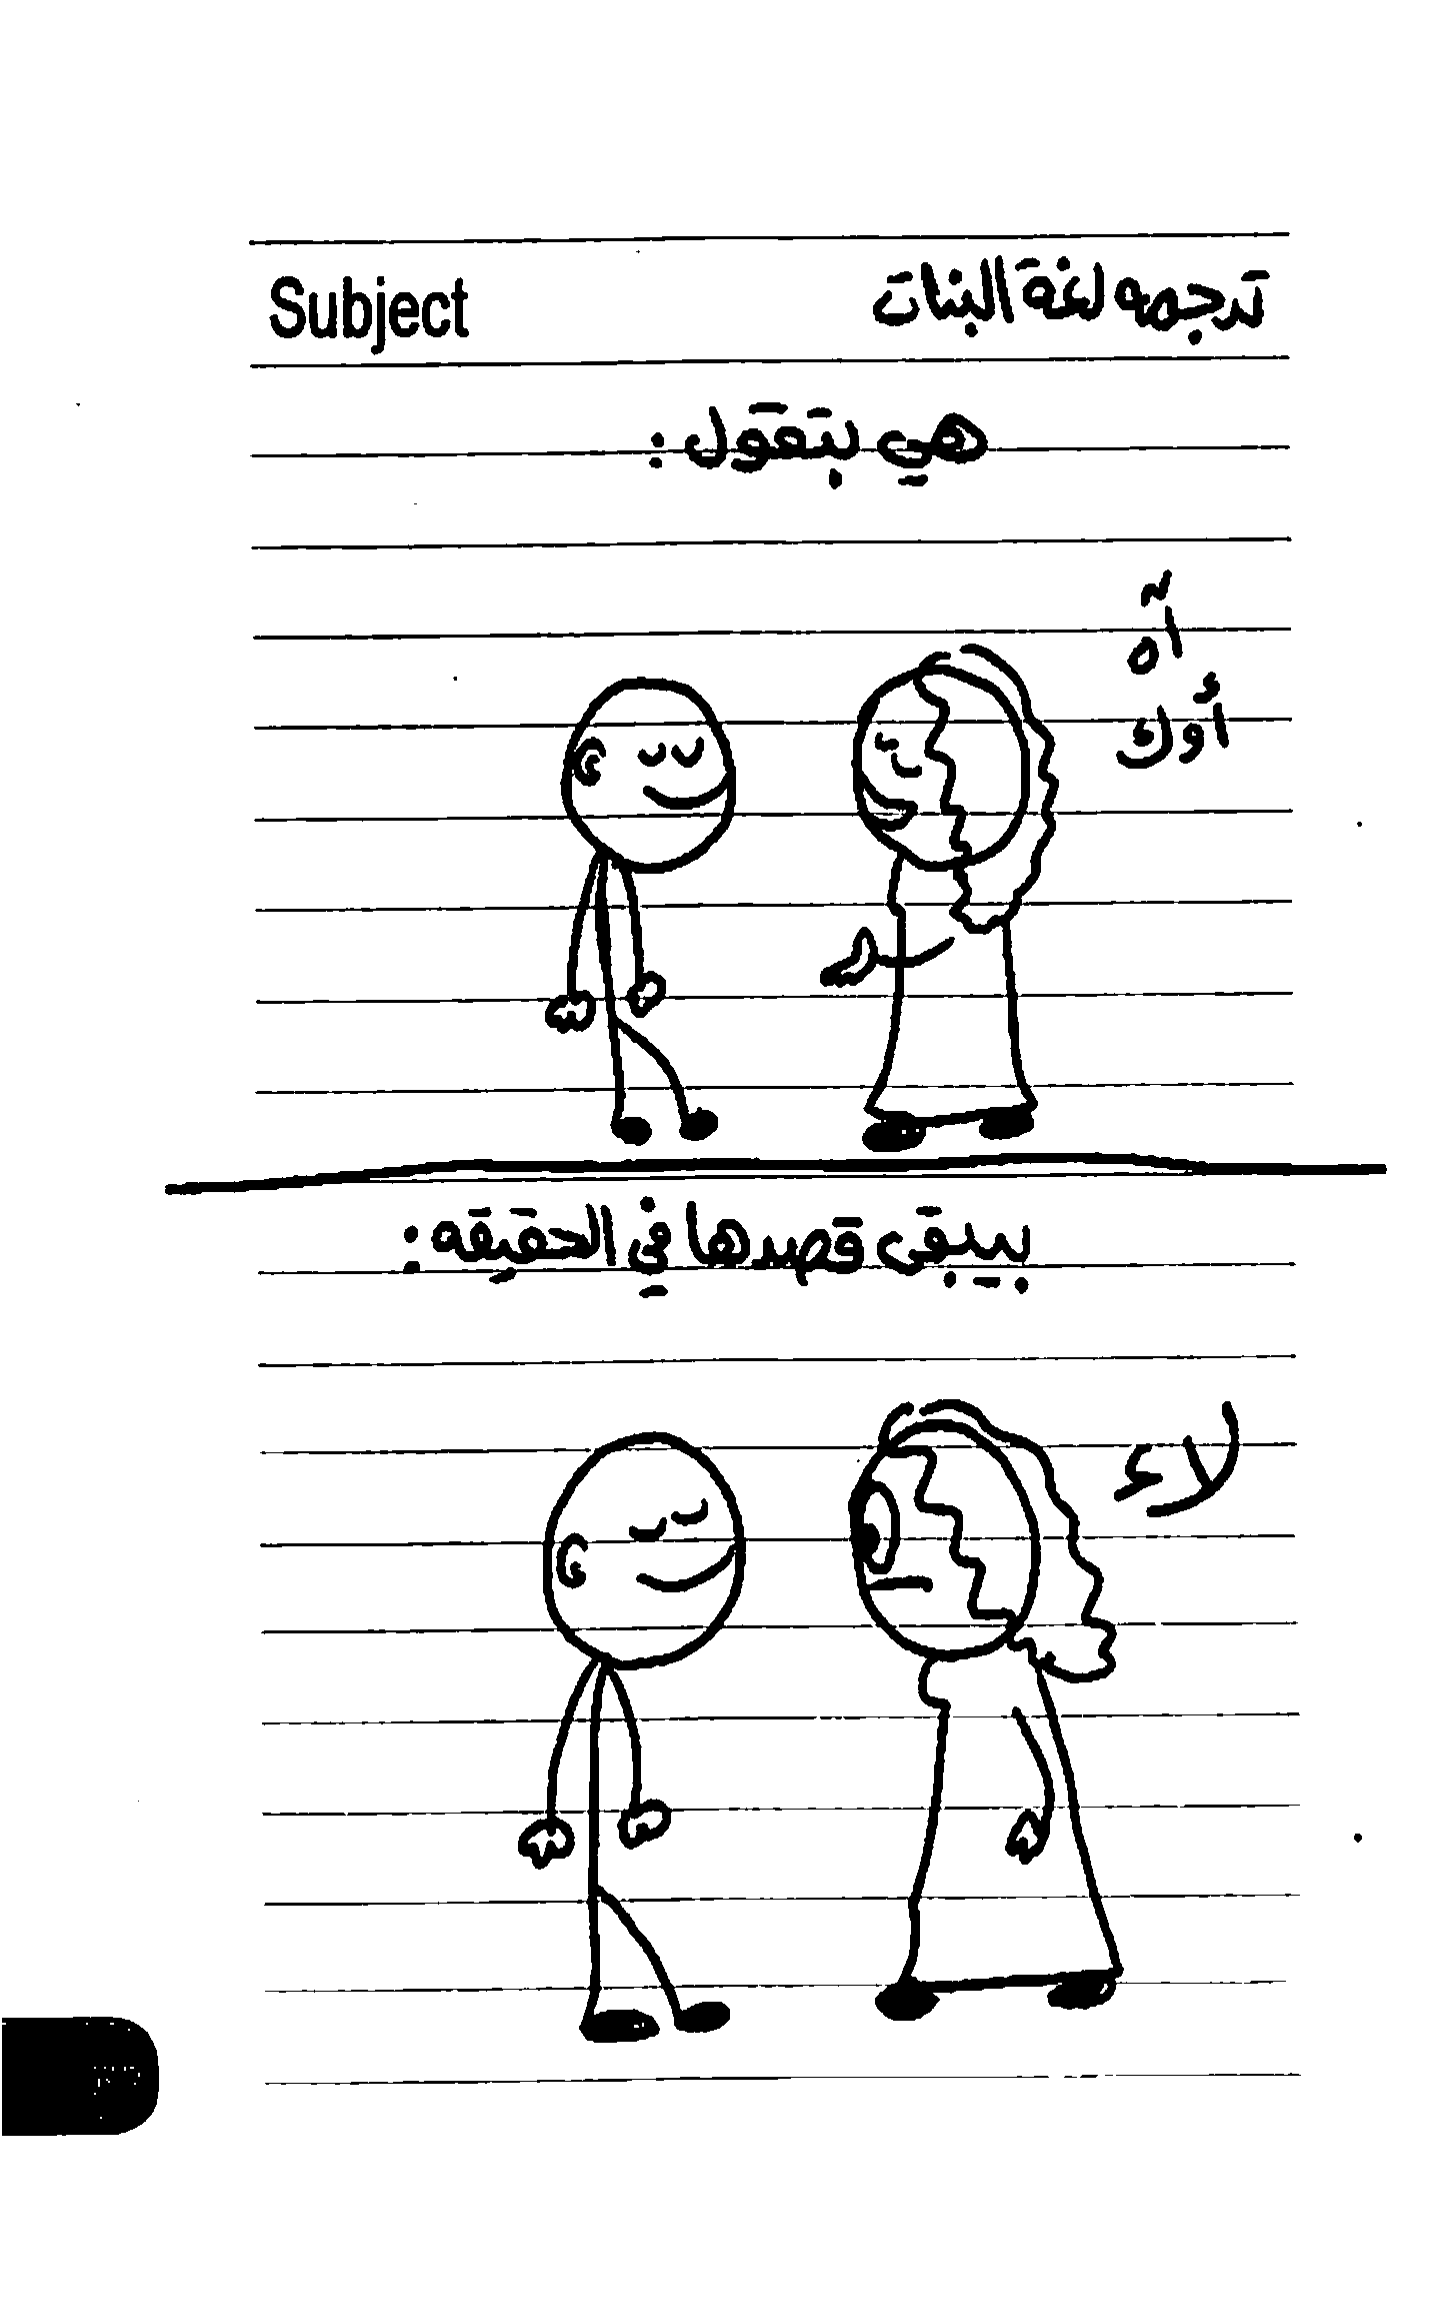 Subject ترجمه لغة البنات
هي بتقول :
آه
أوك
بيبقى قصدها في الحقيقه :
لاء